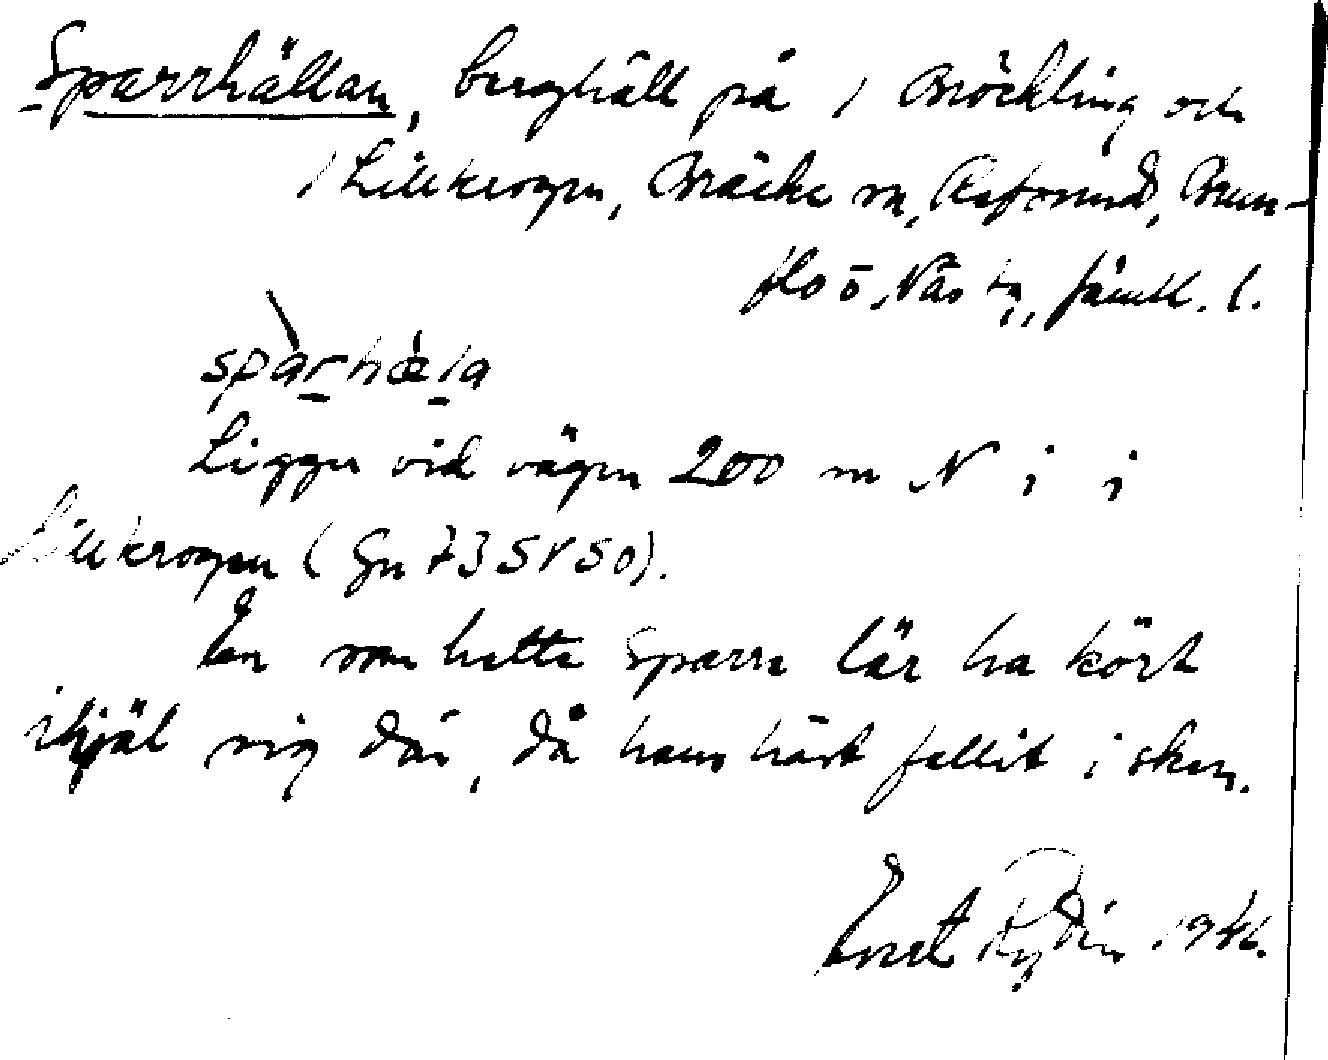 Sparrhällan, berghäll på / Möckling och
/ Lillkrogen, Bräcke sn, Refsund, Brun-
flo o. Näs tg, Jämtl. l.
spàrhæla
Ligger vid vägen 200 m N i i
Lillkrogen (Gn 735850).
En som hette Sparre lär ha kört
ihjäl sig där, då hans häst fallit i sken.
Ernst Rydin 1946.